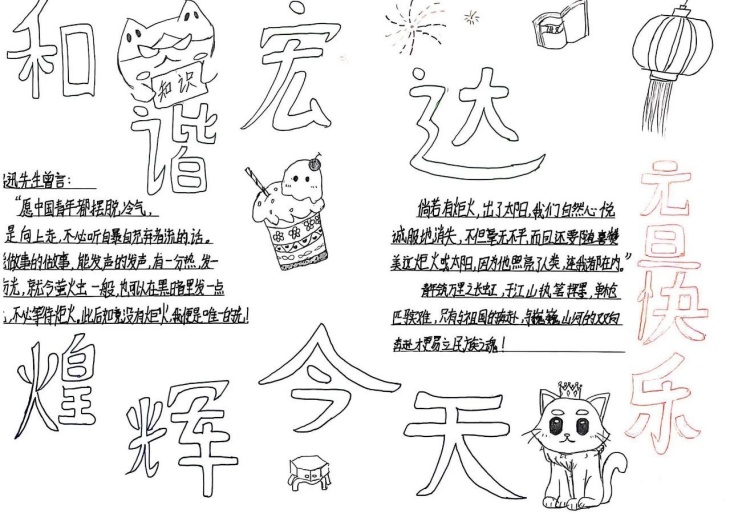 和谐宏达
知识
迅先生曾言：
“愿中国青年都摆脱冷气，
是向上走，不必听自暴自弃者流的话。
做事的做事，能发声的发声，有一分热，发一
光，就令萤火虫一般，也可以在黑暗里发一点
不必等待炬火。此后如竟没有炬火，我便是唯一的光！
倘若有炬火，出了太阳，我们自然心悦
诚服地消失，不但毫无不平，而且还要随喜赞
美这炬火或太阳，因为他照亮了人类，连我都在内。”
万里之长虹，于江山执笔挥墨，单枪
匹 ，只有与祖国的 ，与巍巍山河的双向
奔赴才更易立民族之魂！
辉煌今天
元旦快乐